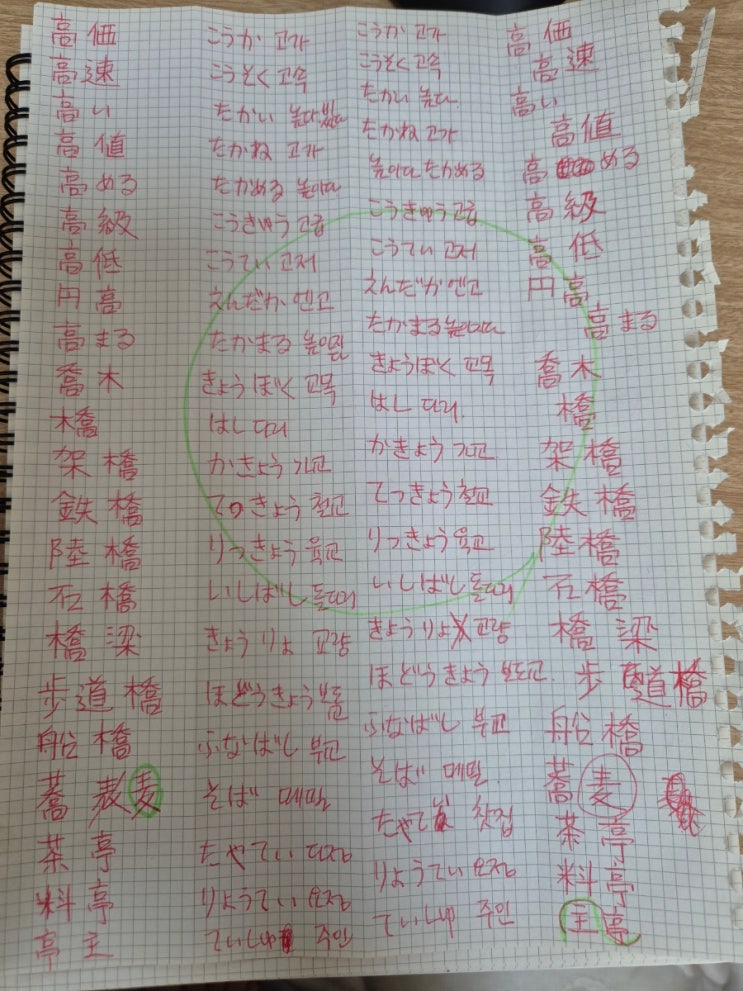 高価 こうか 고가 こうか 고가 高価
高速 こうそく 고속 こうそく 고속 高速
高い たかい 높다 たかい 높다 高い
高値 たかね 고가 たかね 고가 高値
高める たかめる 높이다 높이다 たかめる 高める
高級 こうきゅう 고급 こうきゅう 고급 高級
高低 こうてい 고저 こうてい 고저 高低
円高 えんだか 엔고 えんだか 엔고 円高
高まる たかまる たかまる 높아지다 高まる
喬木 きょうぼく 교목 きょうぼく 교목 喬木
橋 はし 다리 はし 다리 橋
架橋 かきょう 가교 かきょう 가교 架橋
鉄橋 てっきょう 철교 てっきょう 철교 鉄橋
陸橋 りっきょう 육교 りっきょう 육교 陸橋
石橋 いしばし 돌다리 いしばし 돌다리 石橋
橋梁 きょうりょ 교량 きょうりょ 교량 橋梁
歩道橋 ほどうきょう ほどうきょう 보도교 歩道橋
船橋 ふなばし 부교 ふなばし 부교 船橋
蕎麦 そば 메밀 そば 메밀 蕎麦
茶亭 ちゃてい 다정 ちゃてい 찻집 茶亭
料亭 りょうてい 요정 りょうてい 요정 料亭
亭主 ていしゅ 주인 ていしゅ 주인 主亭